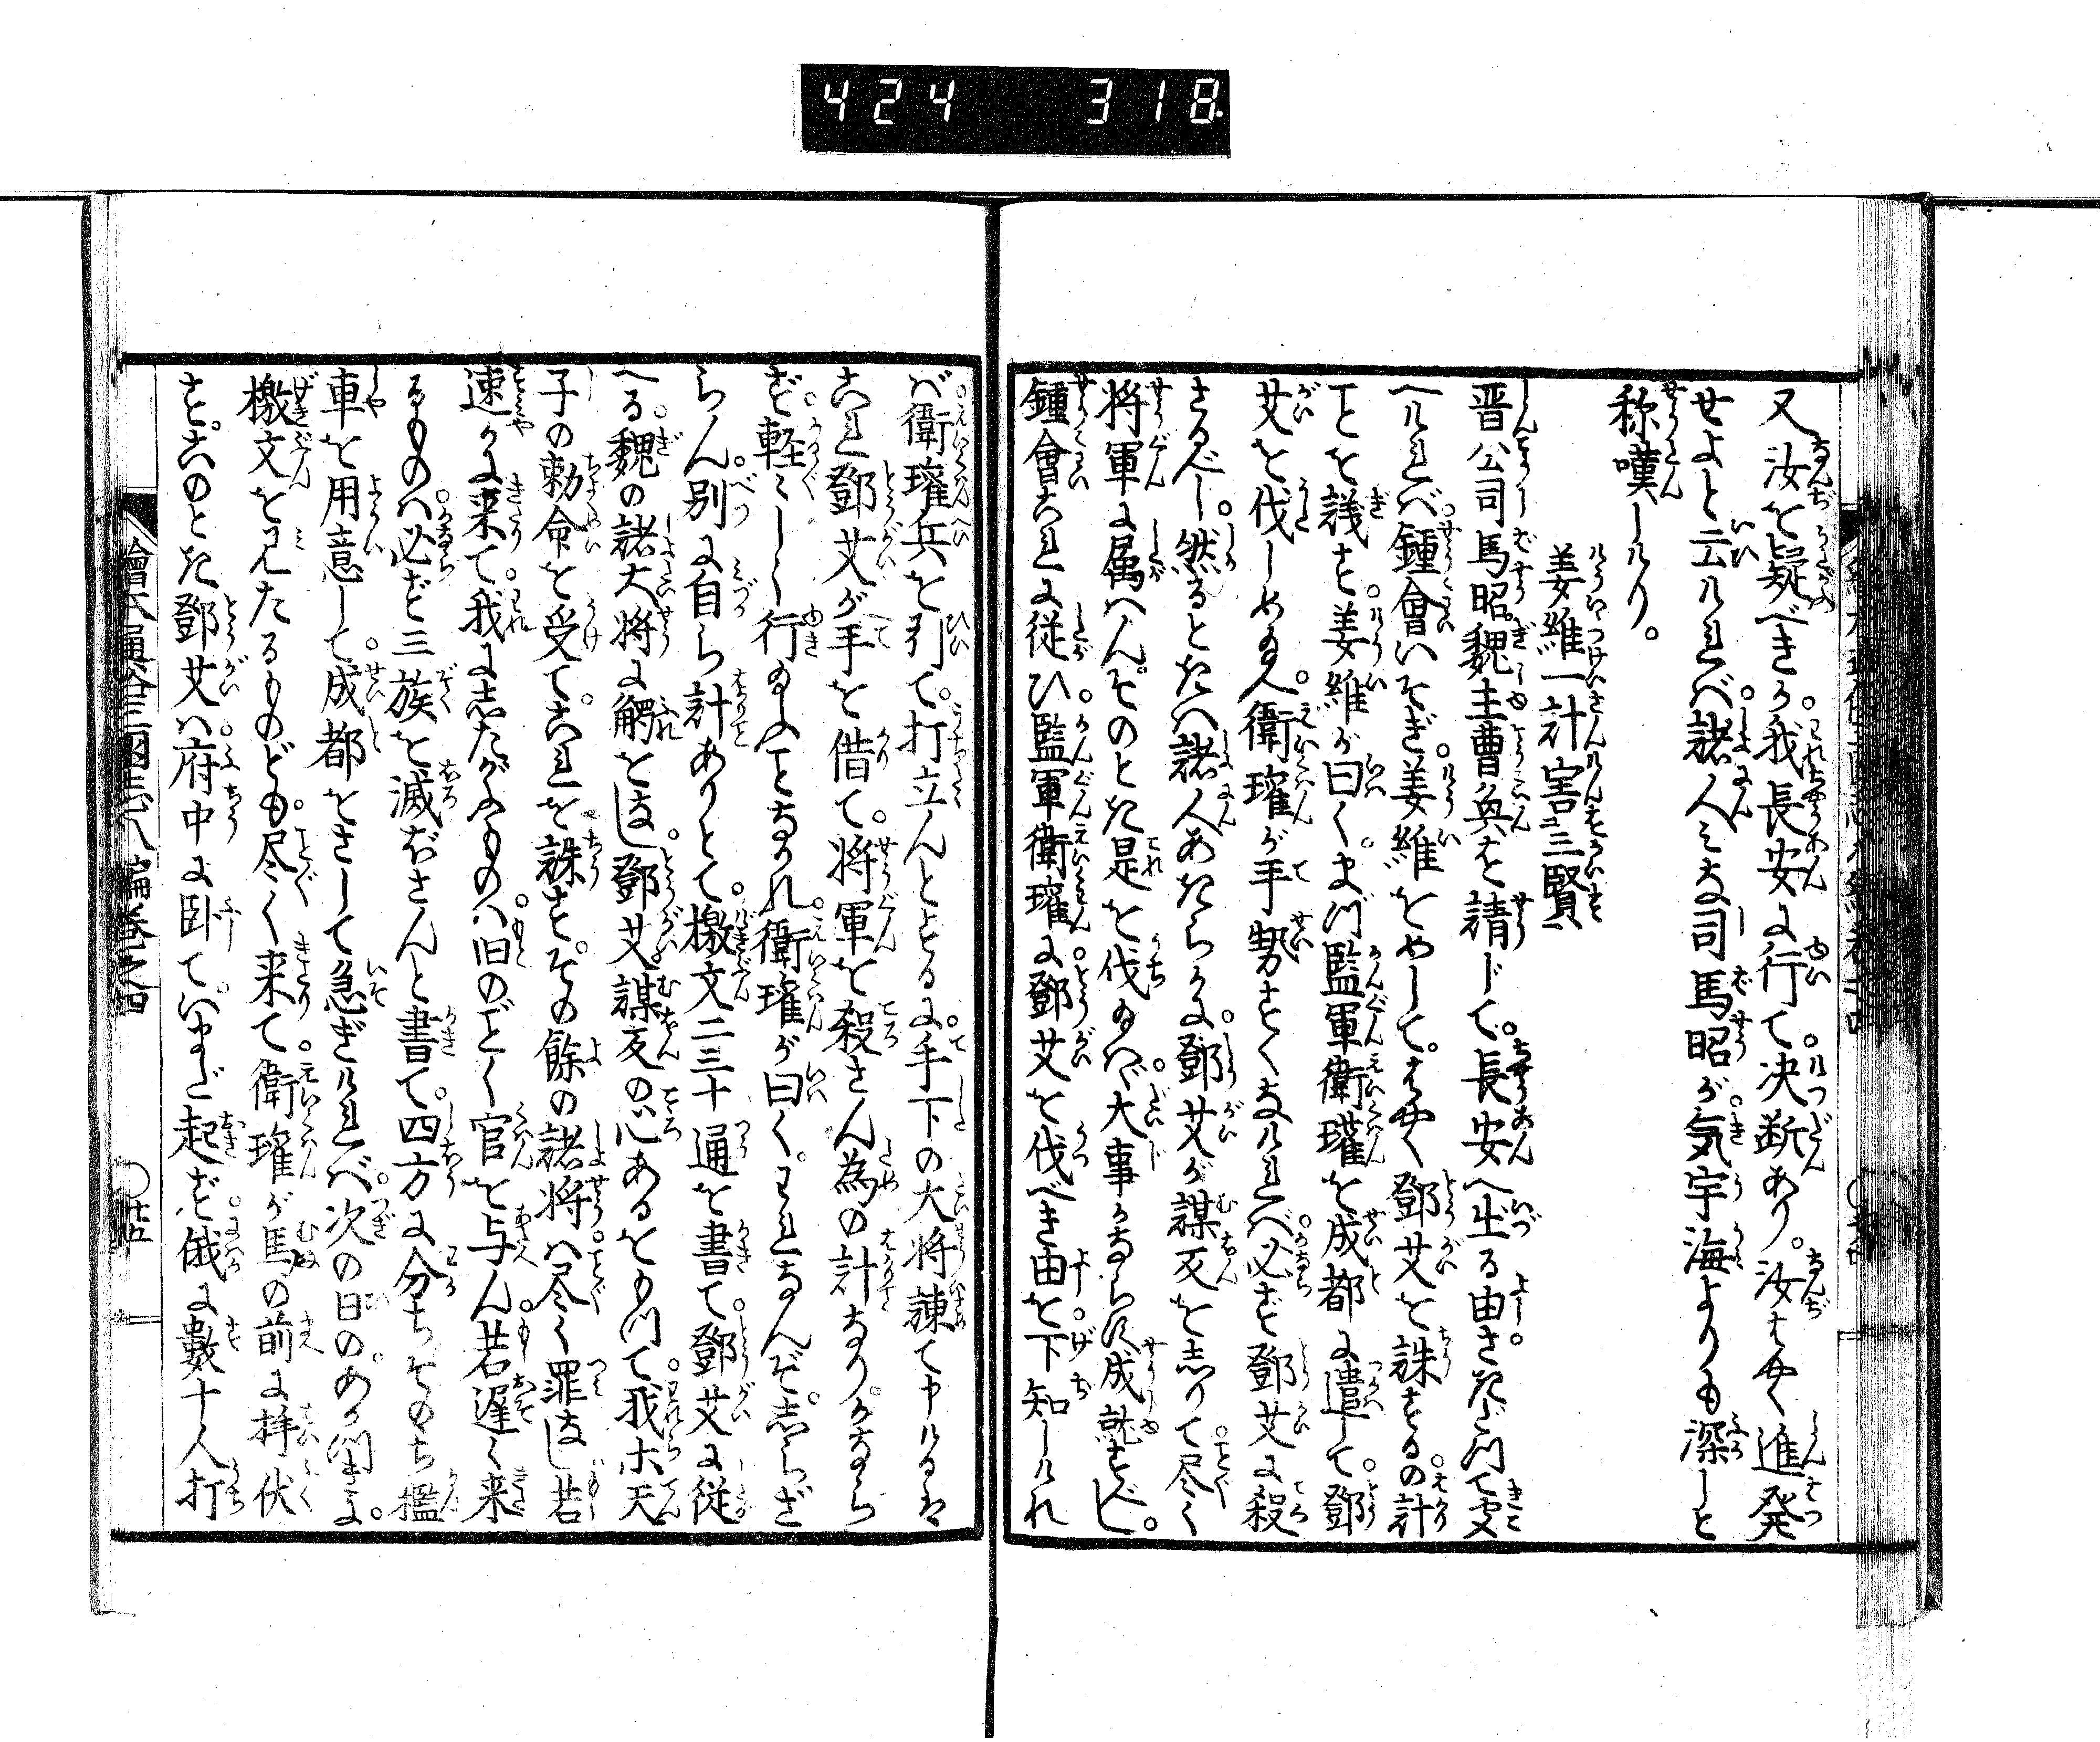 424 318
又汝を疑べきか。我長安に行て。决断あり。汝はやく進発
せよと云ければ。諸人みな司馬昭が。気宇海よりも深しと
称嘆しけり。
姜維一計害三賢
晋公司馬昭。魏主曹奐を請じて。長安へ出る由さだめて聞
へければ。鍾會いそぎ。姜維をめして。はやく鄧艾を誅するの計
ことを議す。姜維が曰く。まづ監軍衛瓘を成都に遣して。鄧
艾を伐しめ給へ。衛瓘が手勢すくなければ。必ず鄧艾に殺
さるべし。然るときは諸人あきらかに。鄧艾が謀反を志りて。尽く
将軍に属はん。そのとき是を伐給はゞ。大事かならず成就すべし。
鍾會これに従ひ。監軍衛瓘に。鄧艾を伐べき由を下知しけれ
ば。衛瓘兵を引て。打立んとするに。手下の大将諌て申けるは
これ鄧艾が手を借て。将軍を殺さん為の計なり。かなら
ず。軽〻しく行給ふことなかれ。衛瓘が曰く。われなんぞ。志らざ
らん。別に自ら計ありとて。檄文二三十通を書て。鄧艾に従
へる。魏の諸大将に觸をまはし。鄧艾。謀反の心あるをもつて。我ホ天
子の勅命を受て。これを誅す。その餘の諸将は。尽く罪なし。若
速かに来て。我に志たがふものは。旧のごとく官を与ん。若遅く来
るものは。必ず三族を滅ぼさんと書て。四方に分ちそのゝち檻
車を用意して。成都をさして急ぎければ。次の日の。あかつきに。
檄文を見たるものども。尽く来て。衛瓘が馬の前に拝伏
す。このとき鄧艾は。府中に臥て。いまだ起ず。俄に數十人打
繪本通俗三國志八編巻之四